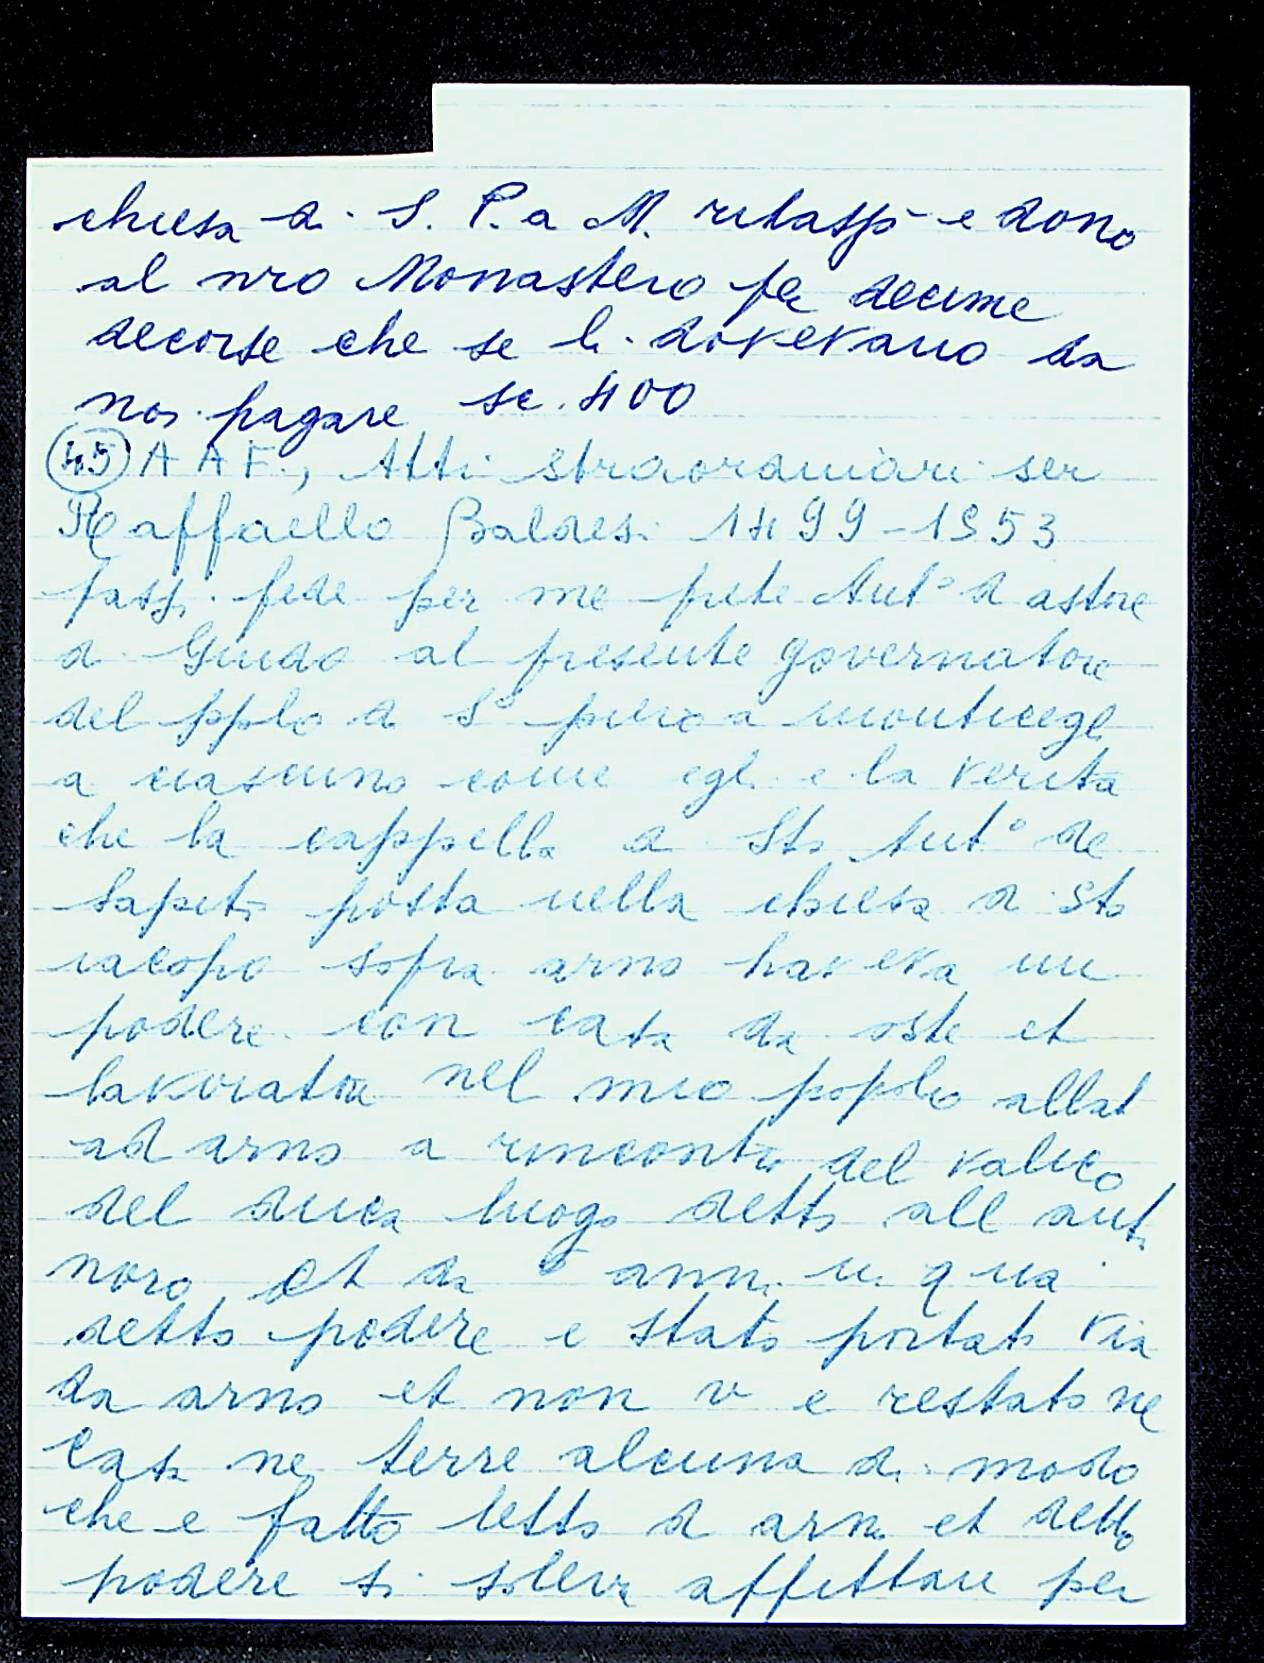 chiesa di S. P. a M. rilassò e donò
al nro Monastero per decime
decorse che se li dovevano da
noi pagare sc. 400
(45) A A F., Atti straordinari ser
Raffaello Baldesi 1499-1553
fassi fede per me prete Ant° d astore
di Guido al presente governatore
del pplo di S° piero a monticegli
a ciascuno come egli e la verita
che la cappella di Sto Ant° de
sapiti posta nella chiesa di Sto
iacopo sopra arno haveva un
podere con casa da oste et
lavoratore nel mio popolo allat
ad arno a rincontro del valico
del duca luogo detto all anti
noro et da 6 anni in qua
detto podere e stato portato via
da arno et non v e restato ne
casa ne terre alcuna di modo
che e fatto letto d arno et detto
podere si soleva affittare per